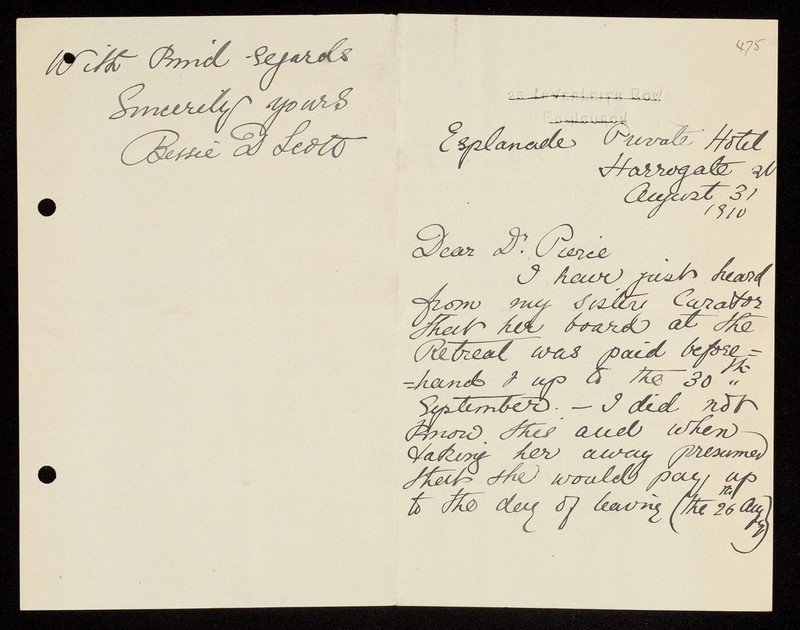 With kind regards
Sincerely yours
Bessie D Scott
475
Esplanade Private Hotel
Harrogate
August 31
1910
Dear Dr. Pierce
I have just heard
from my sisters Curator
that her board at the
Retreat was paid before=
=hand & up to the 30th
September. – I did not
know this and when
taking her away presumed
that she would pay up
to the day of leaving (the 26th Aug